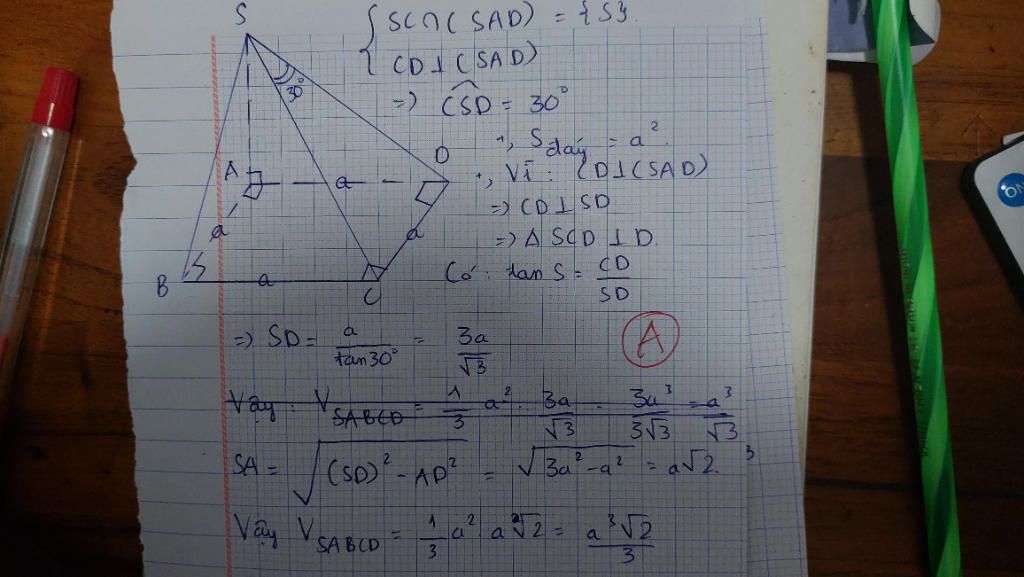 S
{ SC ∩ (SAD) = {S}.
CD ⊥ (SAD)
30°
=> CSD = 30°
+, S đáy = a².
D
A
a
+, Vì : CD ⊥ (SAD)
=> CD ⊥ SD
a
a
=> Δ SCD ⊥ D.
B
a
C
Có : tan S = CD/SD
=> SD = a/tan30° = 3a/√3
A
Vậy : V SABCD = 1/3 a² . 3a/√3 = 3a³/3√3 = a³/√3
SA = √((SD)² - AD²) = √(3a² - a²) = a√2. ³
Vậy V SABCD = 1/3 a² . a√2 = a³√2/3
ON